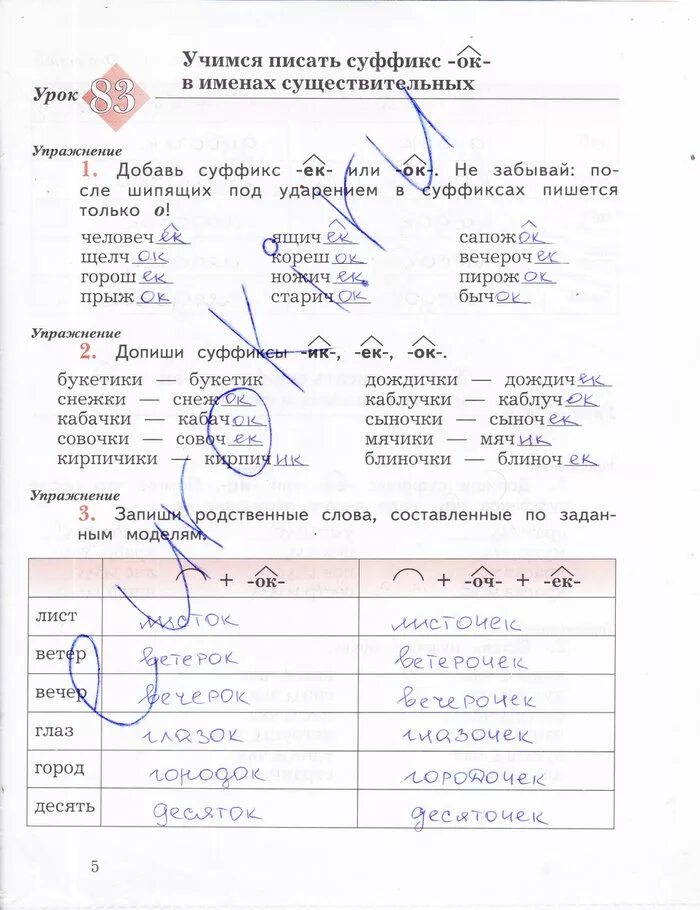 Учимся писать суффикс -ок-
в именах существительных
Урок 83
Упражнение
1. Добавь суффикс -ек- или -ок-. Не забывай: по-
сле шипящих под ударением в суффиксах пишется
только о!
человечек ящичек сапожок
щелчок корешок вечерочек
горошек ножичек пирожок
прыжок старичок бычок
Упражнение
2. Допиши суффиксы -ик-, -ек-, -ок-.
букетики — букетик дождички — дождичек
снежки — снежок каблучки — каблучок
кабачки — кабачок сыночки — сыночек
совочки — совочек мячики — мячик
кирпичики — кирпичик блиночки — блиночек
Упражнение
3. Запиши родственные слова, составленные по задан-
ным моделям.
+ -ок- + -оч- + -ек-
лист листок листочек
ветер ветерок ветерочек
вечер вечерок вечерочек
глаз глазок глазочек
город городок городочек
десять десяток десяточек
5